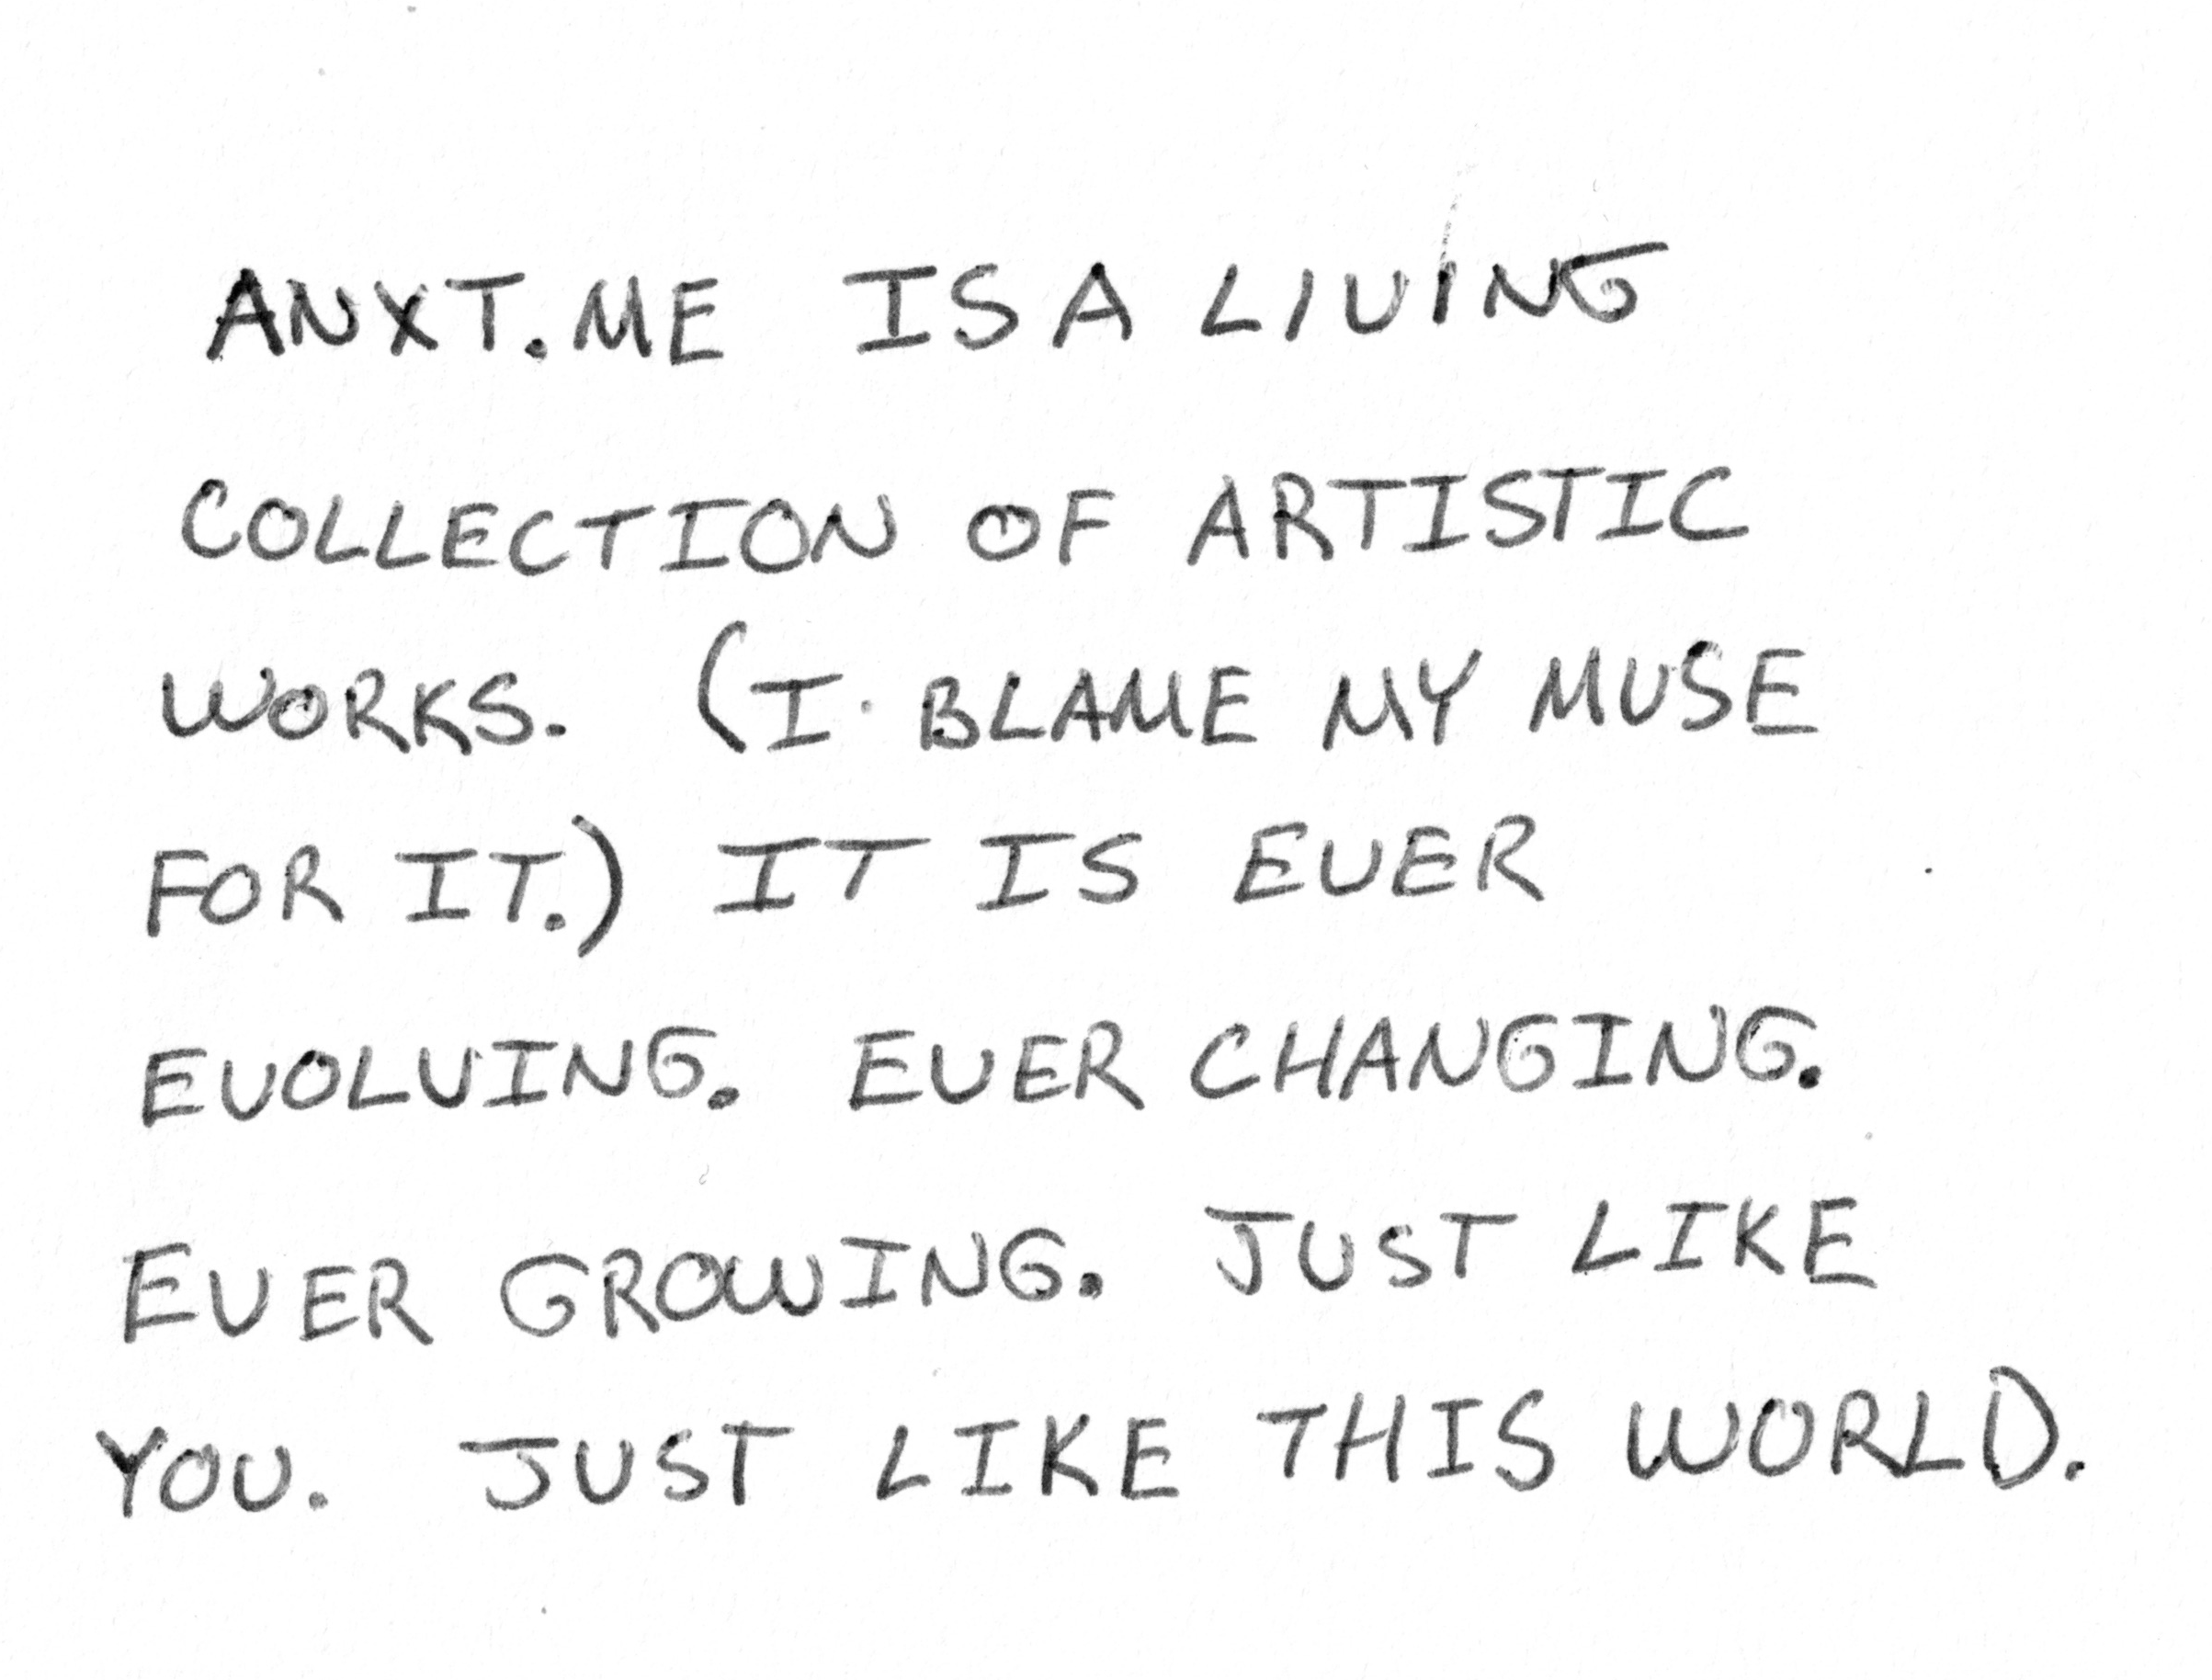 ANXT.ME IS A LIVING
COLLECTION OF ARTISTIC
WORKS. (I BLAME MY MUSE
FOR IT.) IT IS EVER
EVOLVING. EVER CHANGING.
EVER GROWING. JUST LIKE
YOU. JUST LIKE THIS WORLD.